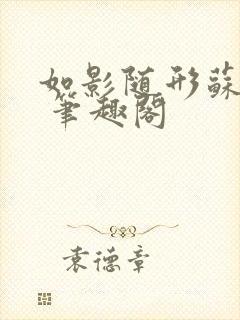 如影随形蘇
笔趣阁
袁德章